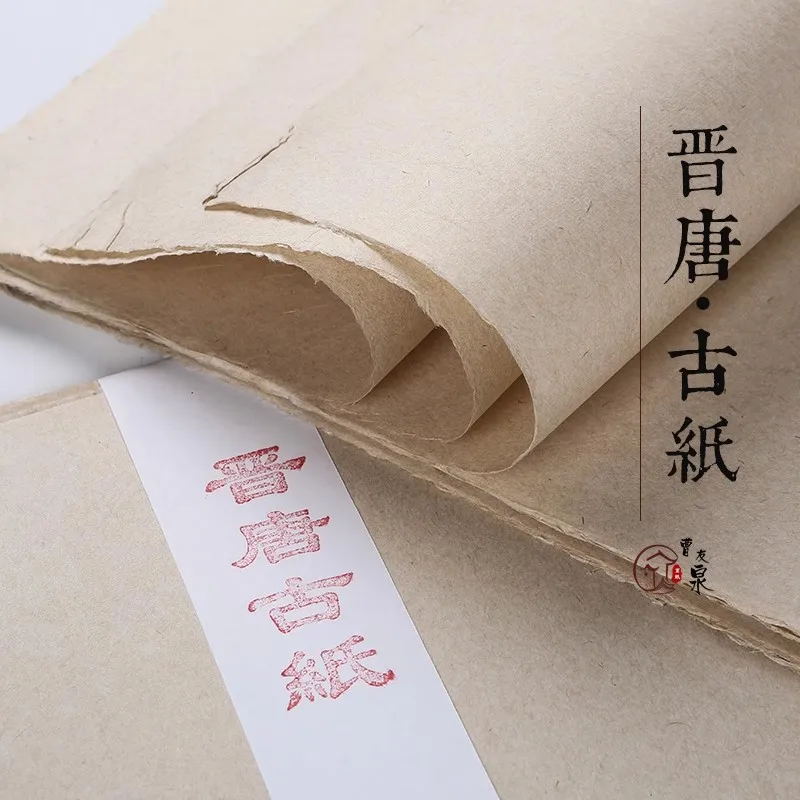 晋唐·古紙
曹友泉
晋唐古紙